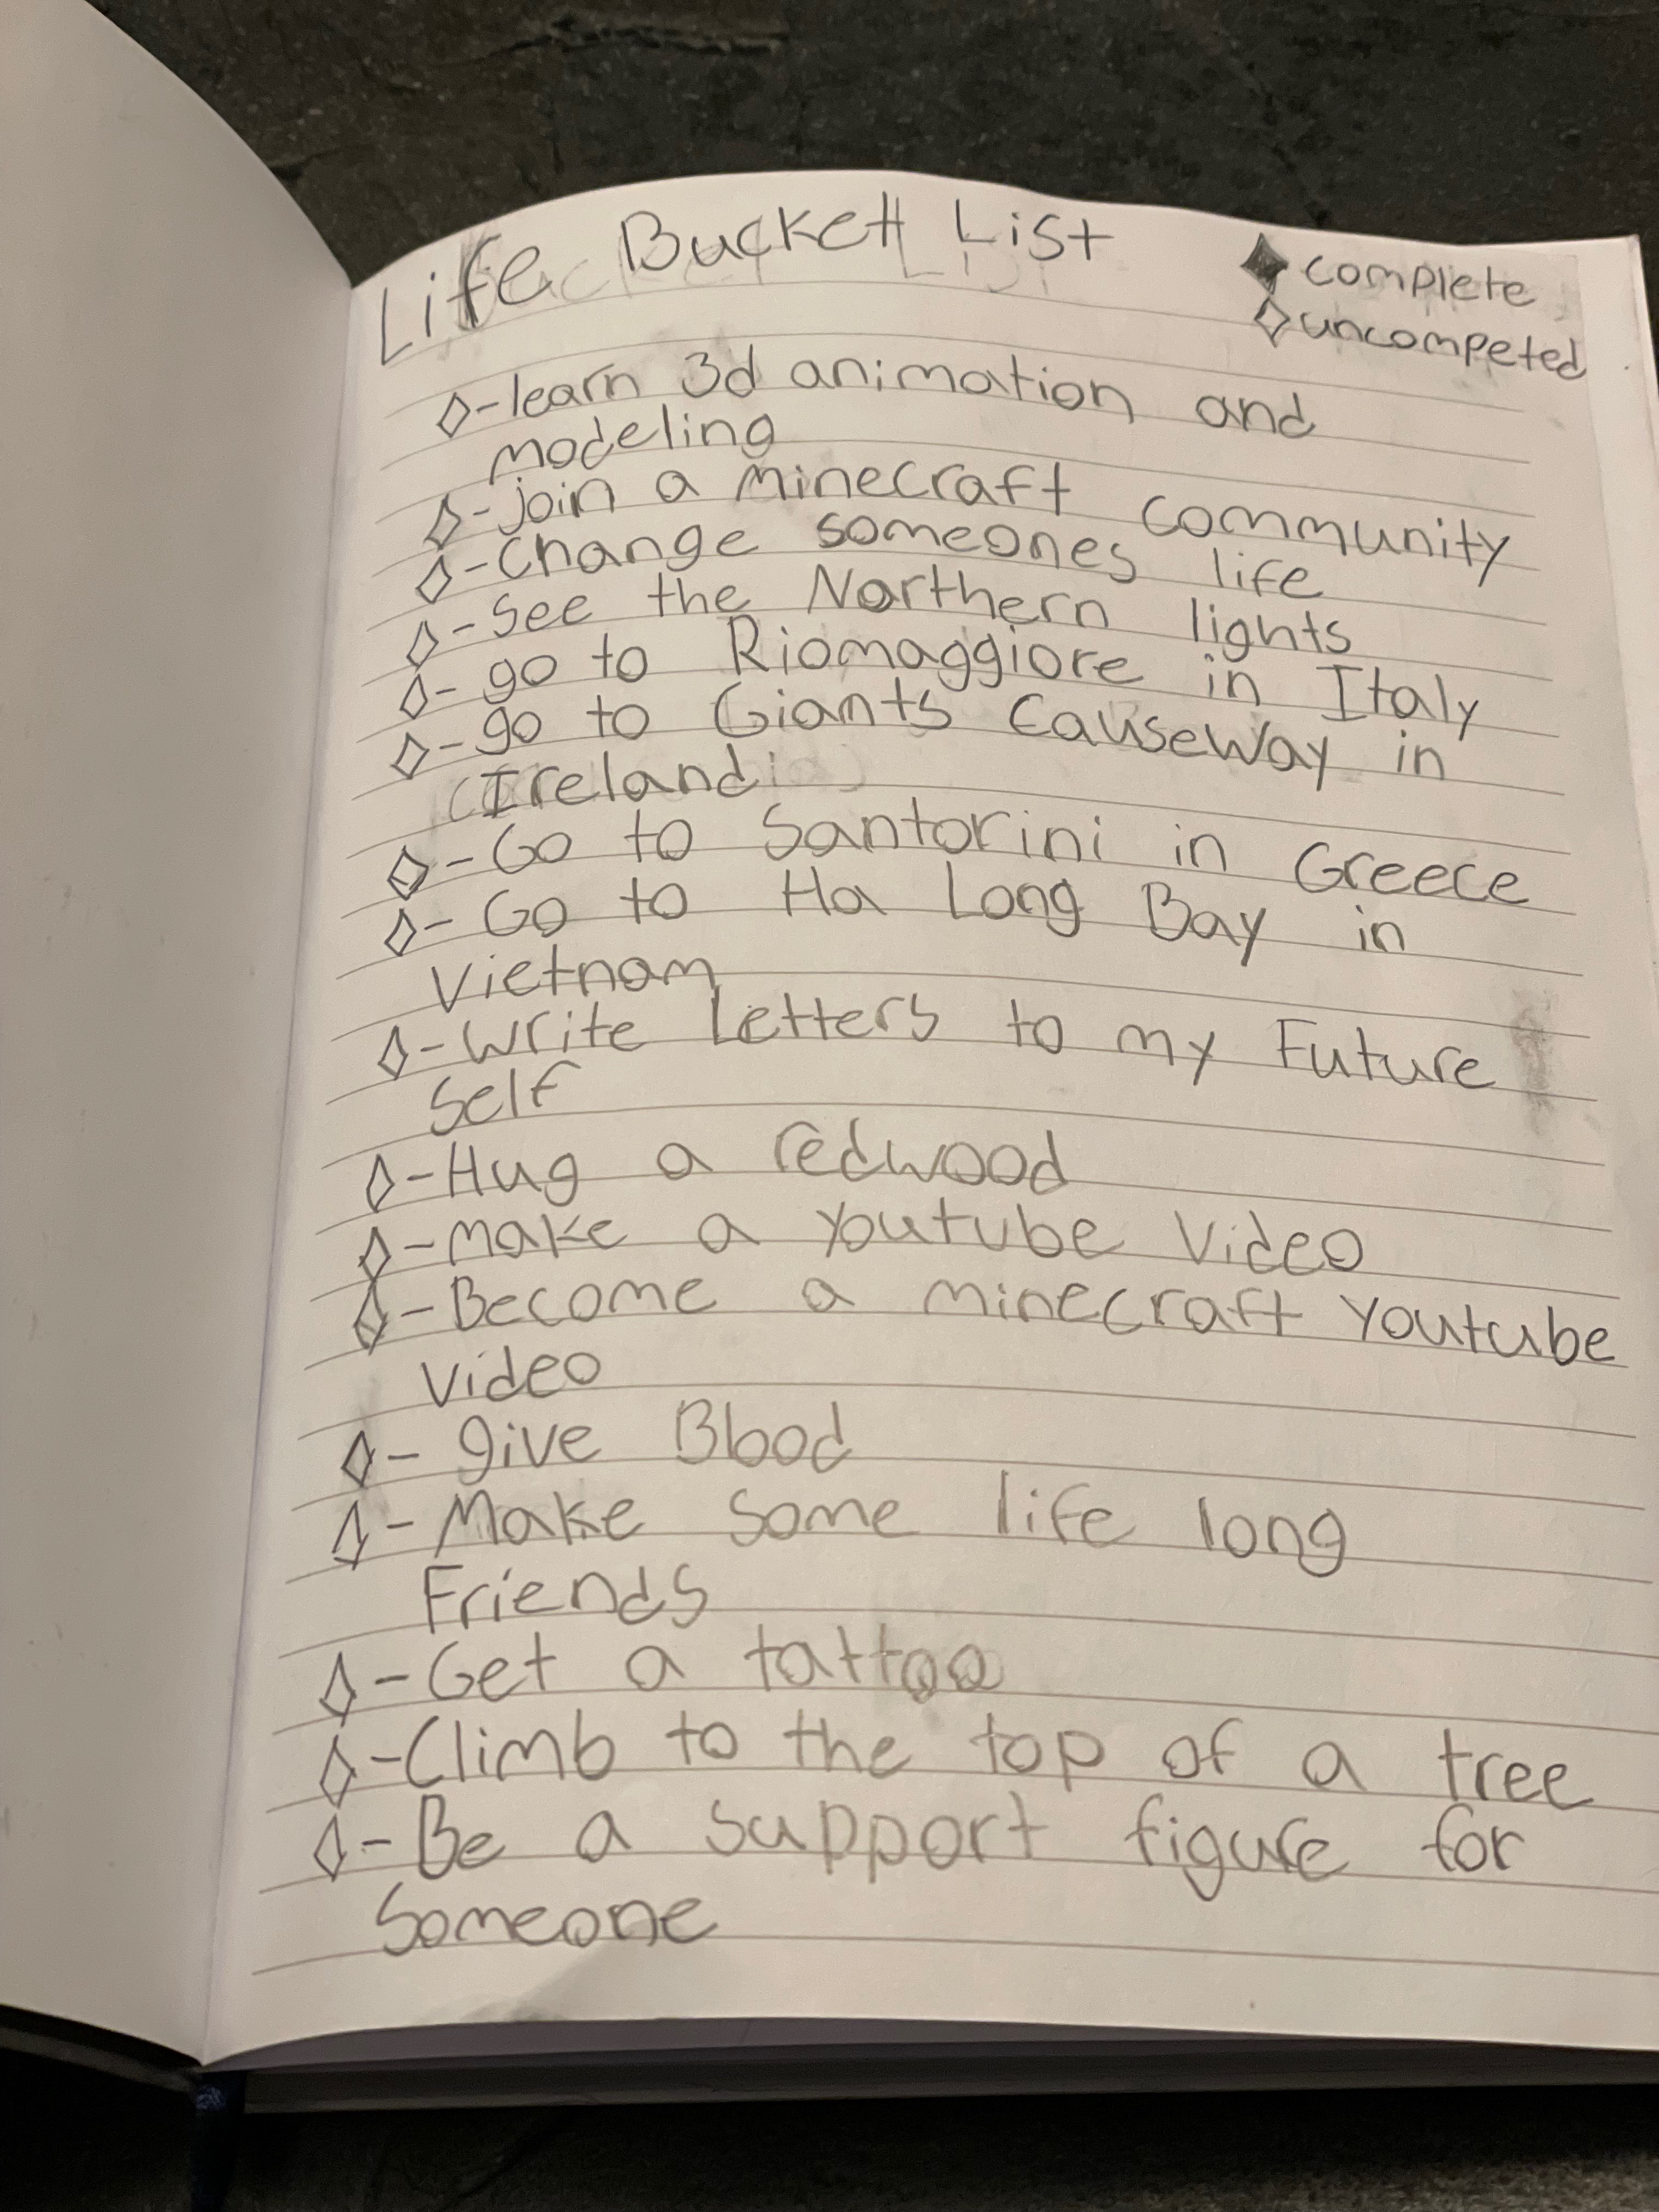 Life Buckett List
complete
uncompeted
-learn 3d animation and
modeling
-join a minecraft community
-Change someones life
-See the Northern lights
-go to Riomaggiore in Italy
-go to Giants Causeway in
Ireland
-Go to Santorini in Greece
-Go to Ha Long Bay in
Vietnam
-Write Letters to my Future
Self
-Hug a redwood
-make a Youtube Video
-Become a minecraft Youtube
Video
- give Blood
-Make some life long
Friends
-Get a tattoo
-Climb to the top of a tree
-Be a support figure for
Someone